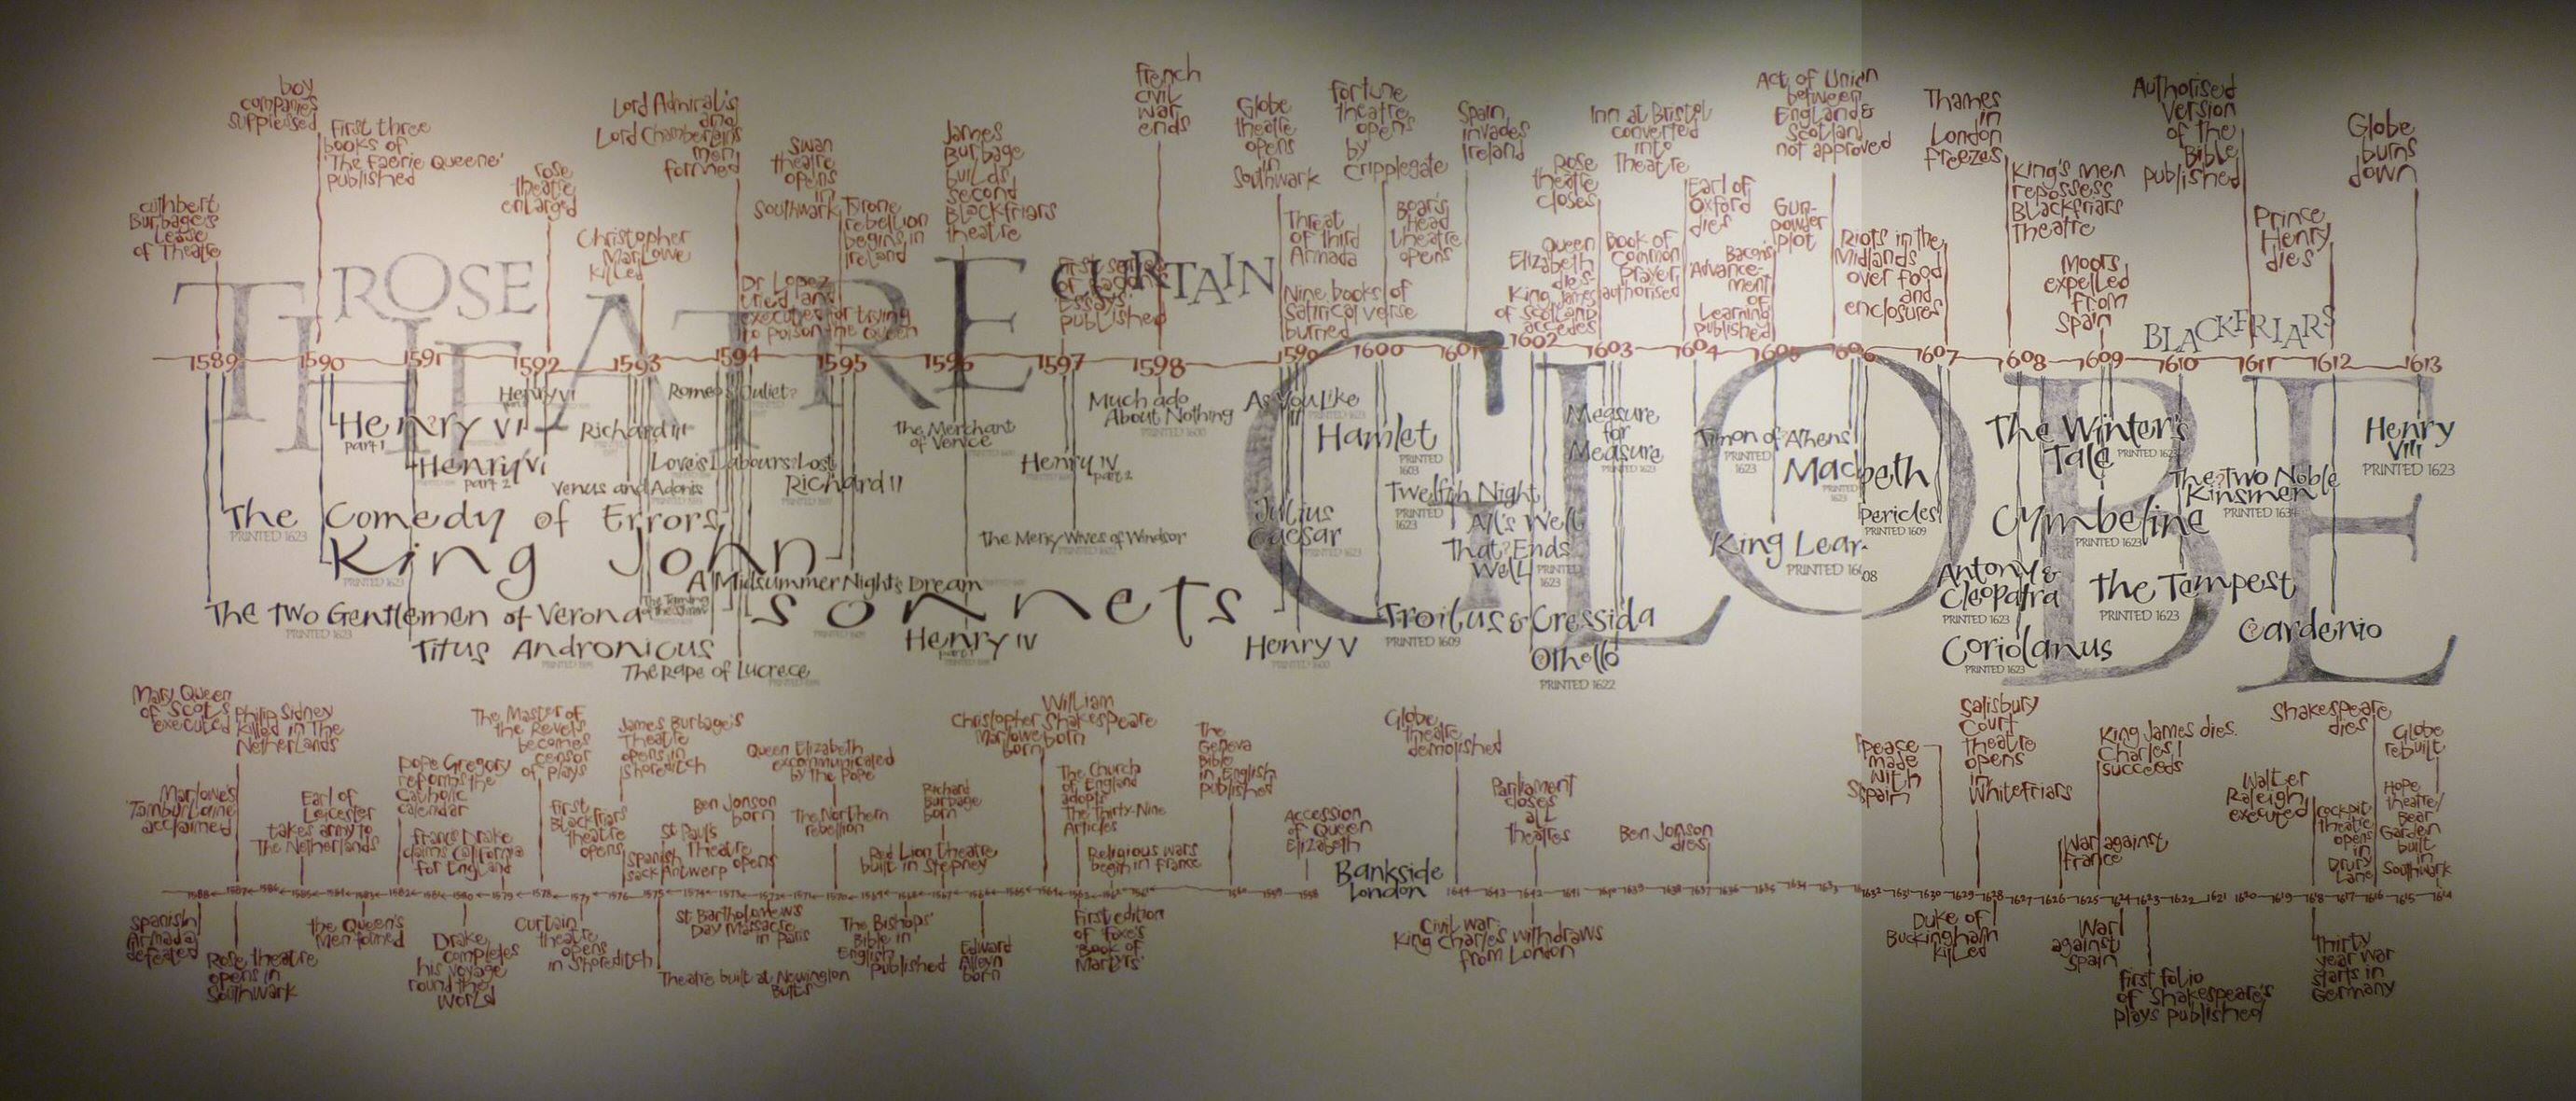 boy
companies
suppressed
First three
books of
'The Faerie Queene'
published
cuthbert
Burbage's
Lease
of Theatre
rose
theatre
enlarged
Lord Admiral's
and
Lord Chamberlain's
men
formed
Christopher
Marlowe
killed
Swan
theatre
opens
in
Southwark
Tyrone
rebellion
begins in
Ireland
Dr Lopez
tried and
executed for trying
to poison the Queen
James
Burbage
builds
second
Blackfriars
theatre
French
civil
war
ends
published
Globe
theatre
opens
in
Southwark
Threat
of third
Armada
Nine books of
Satirical verse
burned
Fortune
theatre
opens
by
Cripplegate
Boar's
Head
theatre
opens
Spain
invades
Ireland
Rose
theatre
closes
Queen
Elizabeth
dies.
King James
of Scotland
accedes
Inn at Bristol
converted
into
Theatre
Book of
Common
Prayer
authorised
Earl of
Oxford
dies
Bacon's
'Advance-
ment
of
Learning'
published
Act of Union
between
England &
Scotland
not approved
Gun-
powder
plot
Riots in the
Midlands
over food
and
enclosures
Thames
in
London
freezes
King's men
repossess
Blackfriars
Theatre
Moors
expelled
from
Spain
Authorised
Version
of the
Bible
published
Prince
Henry
dies
Globe
burns
down
THEATRE
ROSE
CURTAIN
GLOBE
BLACKFRIARS
1589 1590 1591 1592 1593 1594 1595 1596 1597 1598 1599 1600 1601 1602 1603 1604 1605 1606 1607 1608 1609 1610 1611 1612 1613
Henry VI
Henry VI
part 1
Henry VI
part 2
Richard III
Romeo & Juliet?
Love's Labours Lost
Venus and Adonis
Richard II
The Comedy of Errors
PRINTED 1623
King John
PRINTED 1623
A Midsummer Night's Dream
The Two Gentlemen of Verona
PRINTED 1623
The Taming
of the Shrew
Titus Andronicus
The Rape of Lucrece
sonnets
The Merchant
of Venice
Henry IV
part 1
Much ado
About Nothing
PRINTED 1600
Henry IV
part 2
The Merry Wives of Windsor
As You Like
it
Julius
Caesar
PRINTED 1623
Henry V
PRINTED 1600
Hamlet
PRINTED
1603
Twelfth Night
PRINTED
1623
All's Well
That Ends
Well
PRINTED
1623
Troilus & Cressida
PRINTED 1609
Othello
PRINTED 1622
Measure
for
Measure
PRINTED 1623
Timon of Athens
PRINTED
1623
Macbeth
PRINTED
1623
King Lear
PRINTED 1608
Pericles
PRINTED 1609
Antony &
Cleopatra
PRINTED 1623
Coriolanus
PRINTED 1623
The Winter's
Tale
PRINTED 1623
Cymbeline
PRINTED 1623
The Tempest
PRINTED 1623
The Two Noble
Kinsmen
PRINTED 1634
Cardenio
Henry
VIII
PRINTED 1623
Mary Queen
of Scots
executed
Philip Sidney
killed in The
Netherlands
Marlowe's
'Tamburlaine'
acclaimed
Earl of
Leicester
takes army to
The Netherlands
Pope Gregory
reforms the
Catholic
calendar
Francis Drake
claims California
for England
The Master of
the Revels
becomes
censor
of plays
First
Blackfriars
theatre
opens
James Burbage's
Theatre
opens in
Shoreditch
Spanish
sack Antwerp
St Paul's
Theatre
opens
Ben Jonson
born
Queen Elizabeth
excommunicated
by the Pope
The Northern
rebellion
Richard
Burbage
born
Red Lion theatre
built in Stepney
Christopher
Marlowe
born
William
Shakespeare
born
The Church
of England
adopts
The Thirty-Nine
Articles
Religious wars
begin in France
The
Geneva
Bible
in English
published
Accession
of Queen
Elizabeth
Bankside
London
Globe
theatre
demolished
Parliament
closes
all
theatres
Ben Jonson
dies
Peace
made
with
Spain
Salisbury
Court
Theatre
opens
in
Whitefriars
War against
France
King James dies.
Charles I
succeeds
Walter
Raleigh
executed
Cockpit
theatre
opens
in
Drury
Lane
Shakespeare
dies
Globe
rebuilt
Hope
theatre/
Bear
Garden
built
in
Southwark
Spanish
Armada
defeated
Rose theatre
opens in
Southwark
the Queen's
Men formed
Drake
completes
his voyage
round the
World
Curtain
theatre
opens
in Shoreditch
St Bartholomew's
Day Massacre
in Paris
Theatre built at Newington
Butts
The Bishops'
Bible in
English
published
Edward
Alleyn
born
First edition
of Foxe's
'Book of
Martyrs'
Civil war:
King Charles withdraws
from London
Duke of
Buckingham
killed
War
against
Spain
First folio
of Shakespeare's
plays published
Thirty
year war
starts in
Germany